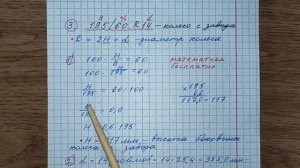 B % d
③ 195/60 R 14 - колесо с завода
• D = 2H + d - диаметр колеса
① 100 · H/B = 60
математика
бесплатно
100 · H/195 = 60
H/195 = 60 : 100
× 195
0,6
117,0 = 117
= 0,6
H = 0,6 · 195
• H = 117 мм - высота боковины
колеса завода
② d = 14 дюймов = 14 · 25,4 = 355,6 мм